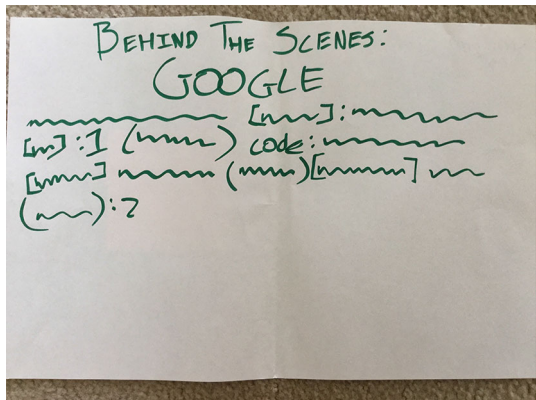 BEHIND THE SCENES:
GOOGLE
[ ]:
[ ]:1 ( ) code:
[ ] ( )[ ]
( ):2